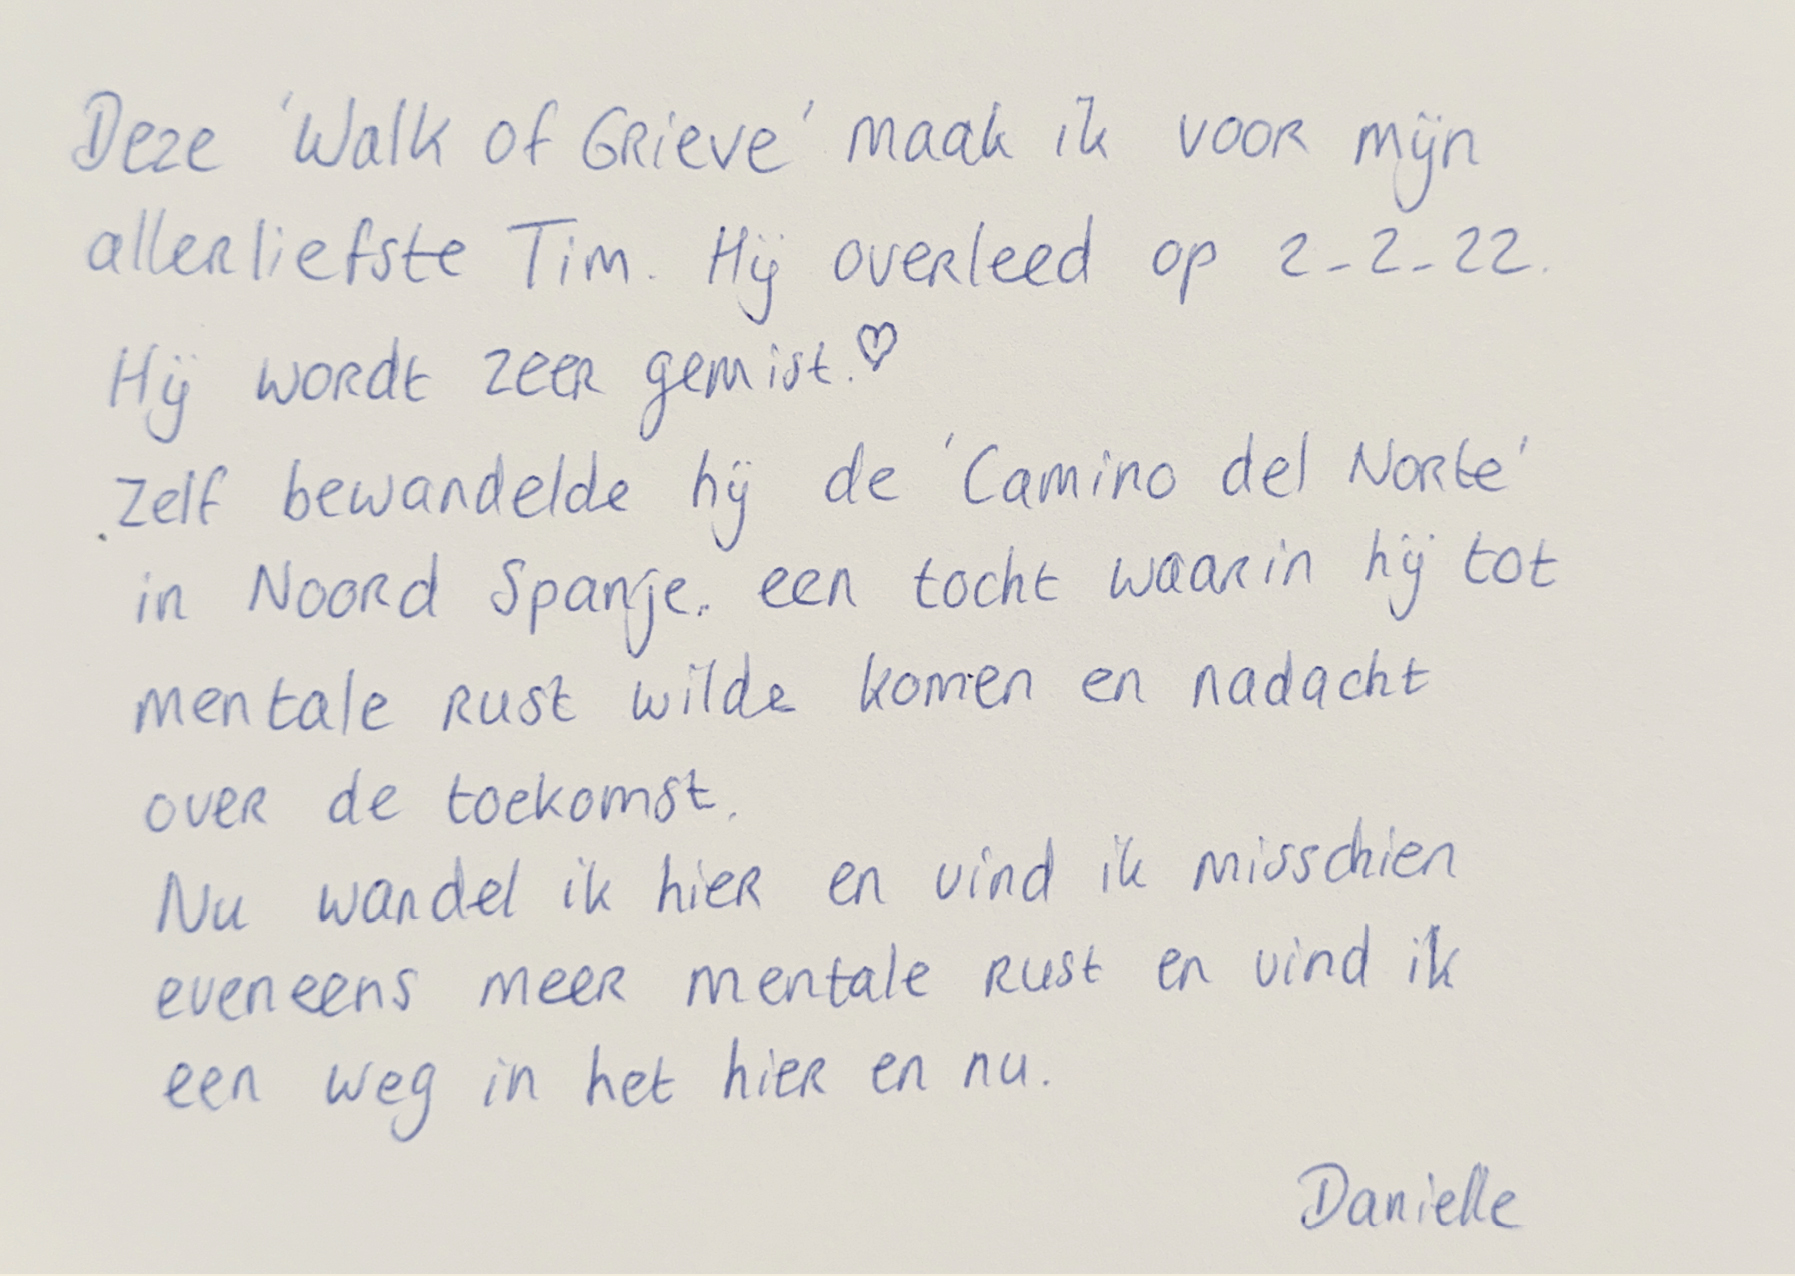 Deze 'Walk of Grieve' maak ik voor mijn
allerliefste Tim. Hij overleed op 2-2-22.
Hij wordt zeer gemist.♡
Zelf bewandelde hij de 'Camino del Norte'
in Noord Spanje. een tocht waarin hij tot
mentale rust wilde komen en nadacht
over de toekomst.
Nu wandel ik hier en vind ik misschien
eveneens meer mentale rust en vind ik
een weg in het hier en nu.
Danielle